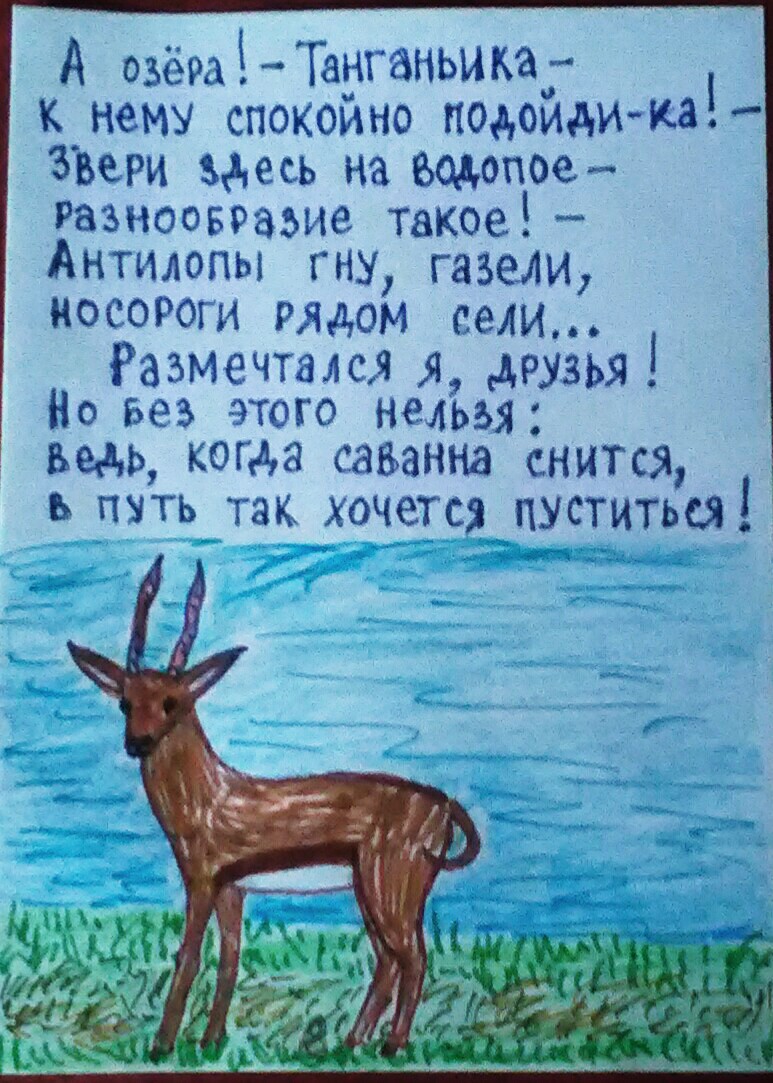 А озёра! – Танганьика –
к нему спокойно подойди-ка! –
Звери здесь на водопое –
разнообразие такое! –
Антилопы гну, газели,
носороги рядом сели...
Размечтался я, друзья!
Но без этого нельзя:
ведь, когда саванна снится,
в путь так хочется пуститься!
8